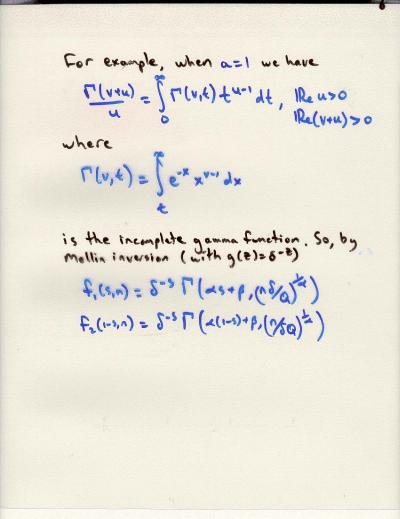 For example, when a=1 we have
Γ(v+u)/u = ∫₀^∞ Γ(v,t) t^{u-1} dt, Re u>0
Re(v+u)>0
where
Γ(v,t) = ∫_t^∞ e^{-x} x^{v-1} dx
is the incomplete gamma function. So, by
Mellin inversion (with g(z)=δ^{-z})
f₁(s,n) = δ^{-s} Γ(αs+β,(nδ/Q)^{1/α})
f₂(1-s,n) = δ^{-s} Γ(α(1-s)+β,(n/δQ)^{1/α})